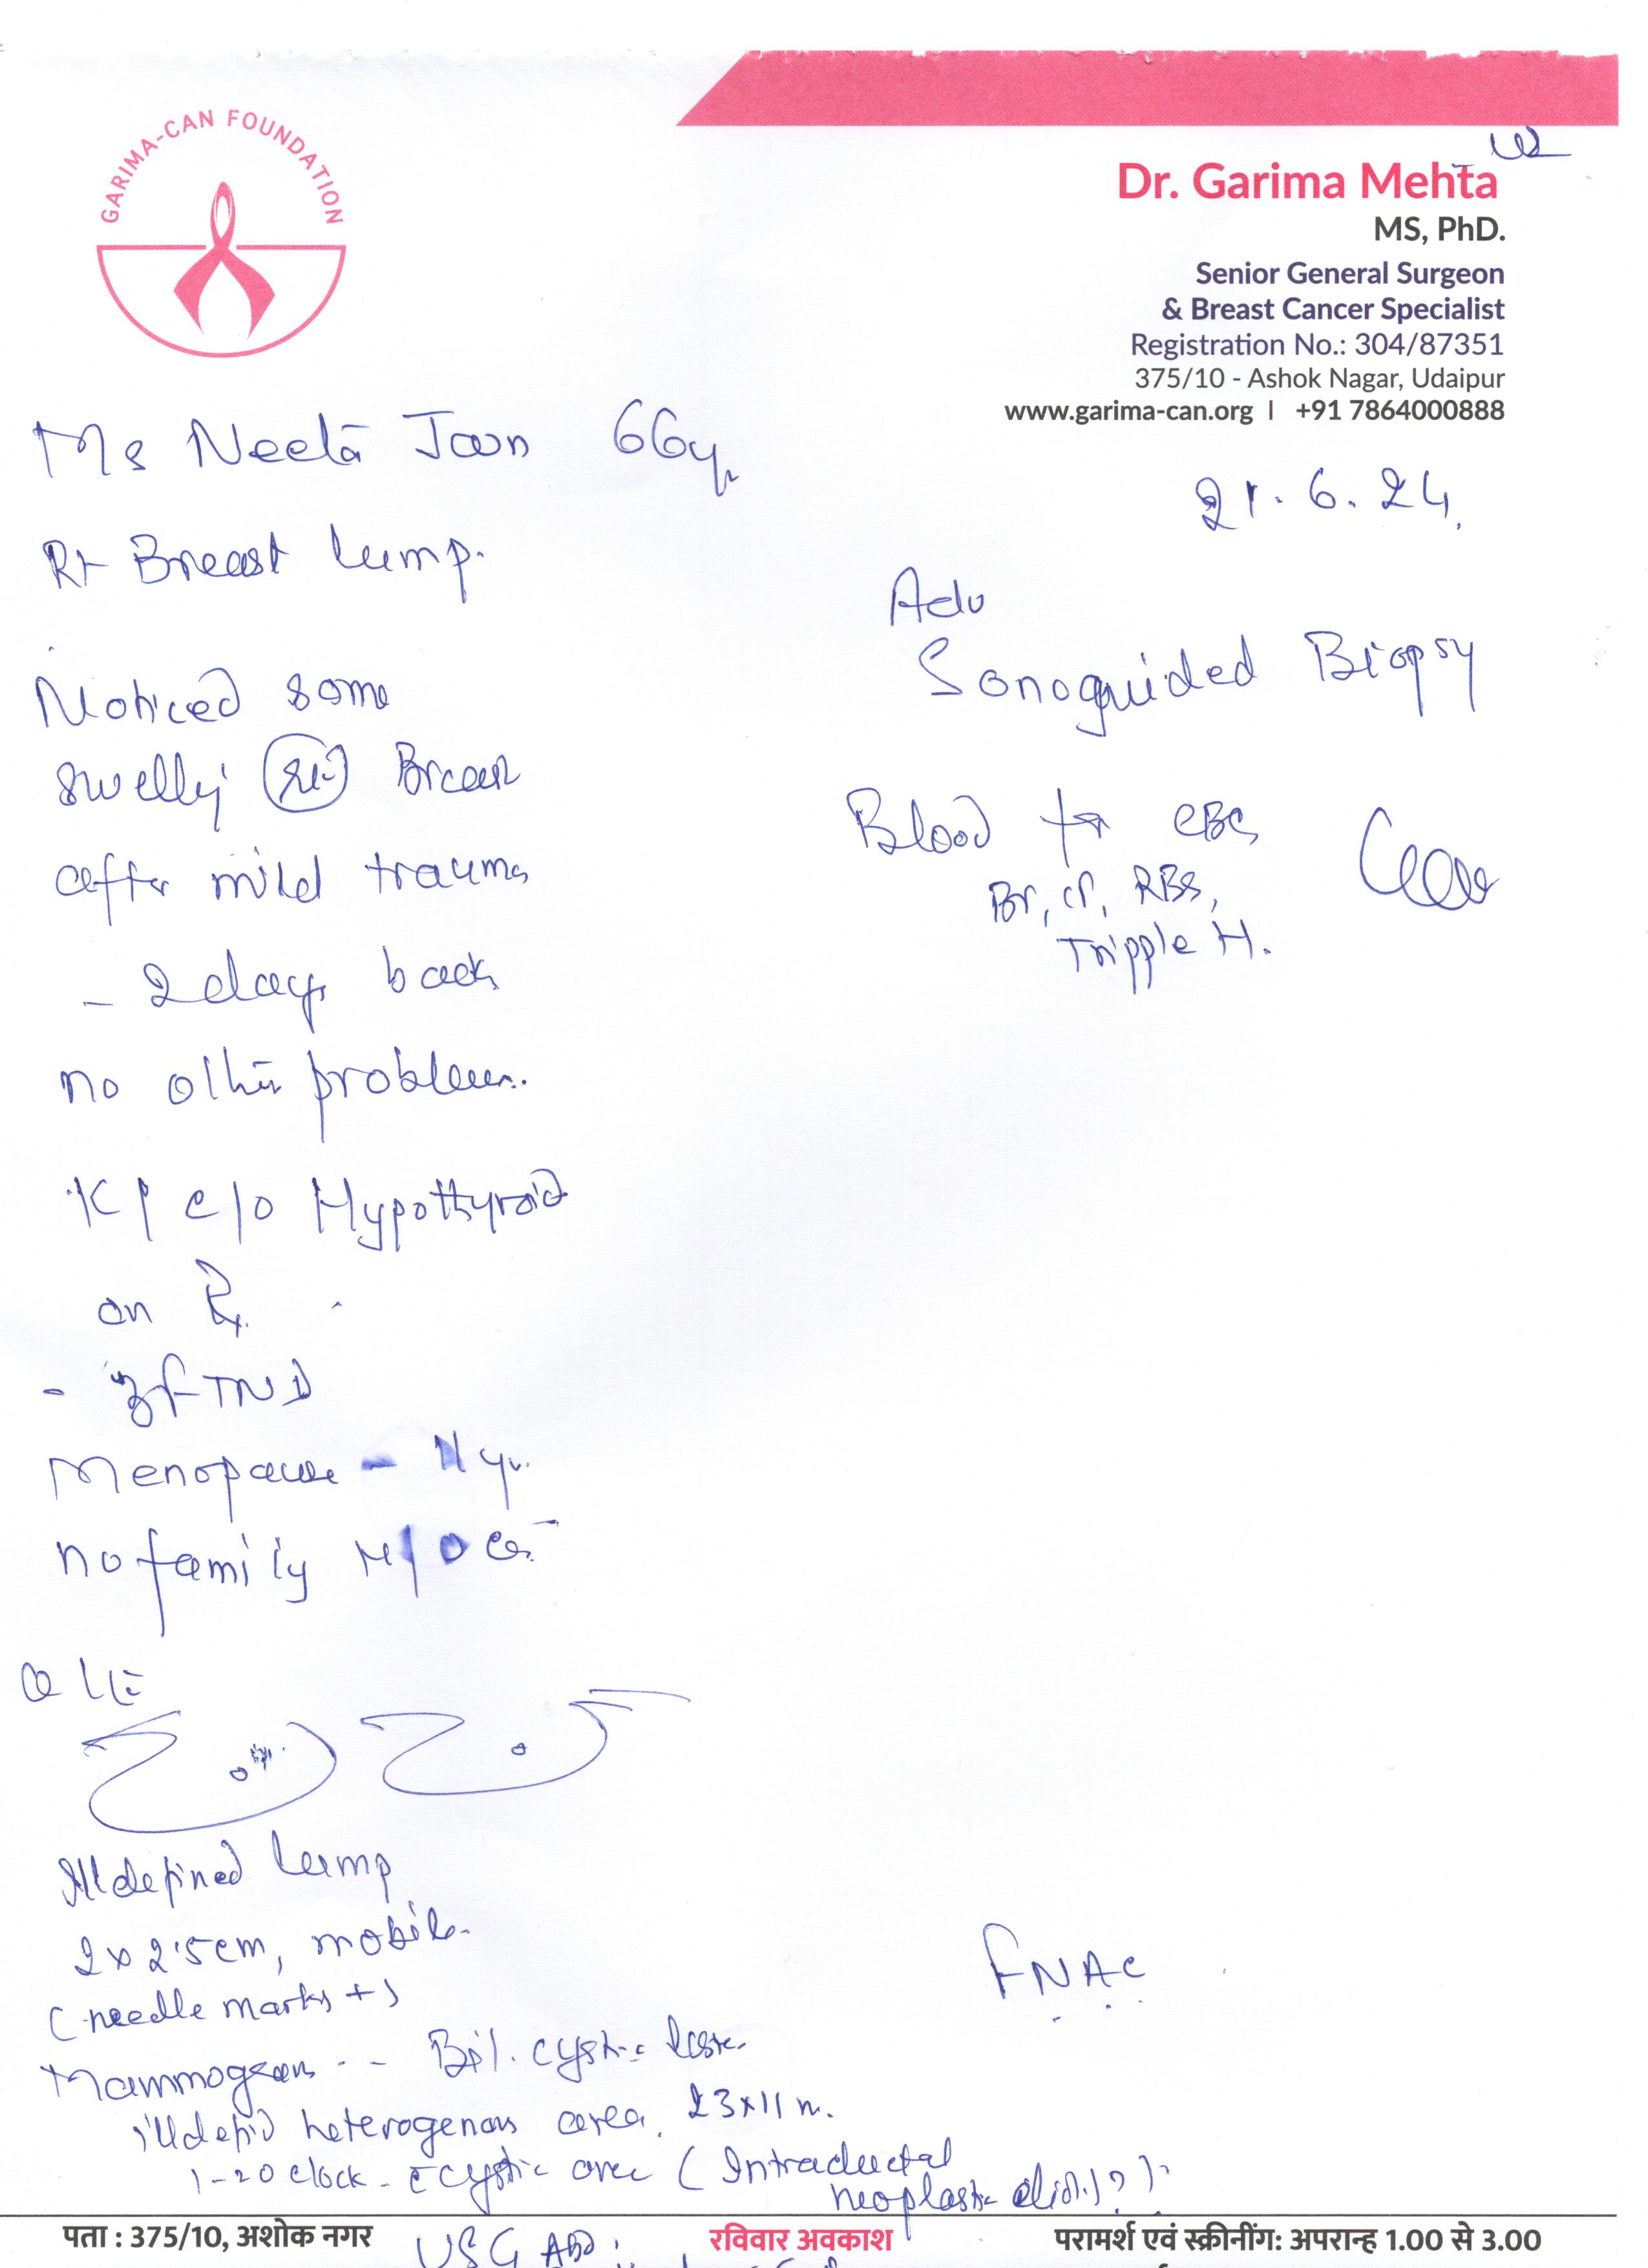 GARIMA-CAN FOUNDATION
Dr. Garima Mehta
MS, PhD.
Senior General Surgeon
& Breast Cancer Specialist
Registration No.: 304/87351
375/10 - Ashok Nagar, Udaipur
www.garima-can.org | +91 7864000888
Ms Neeta Jain 66y
21.6.24
Rt Breast lump.
Noticed some
swelling Rt Breast
after mild trauma
- 2 days back
no other problem.
K/c/o Hypothyroid
on Rx
- 3 FTND
Menopause - 11 yr.
no family H/O Ca
O/E
Illdefined lump
2 x 2.5 cm, mobile
(needle marks +)
Mammogram -- Bil. cystic
illdefid heterogenous area 23x11 m.
1-2 o clock - c cystic area (Intraductal
neoplastic ?)
USG Abd
Adv
Sonoguided Biopsy
Blood for CBC
BT, CT, RBS,
Tripple H.
FNAC
पता : 375/10, अशोक नगर
रविवार अवकाश
परामर्श एवं स्क्रीनींग: अपरान्ह 1.00 से 3.00